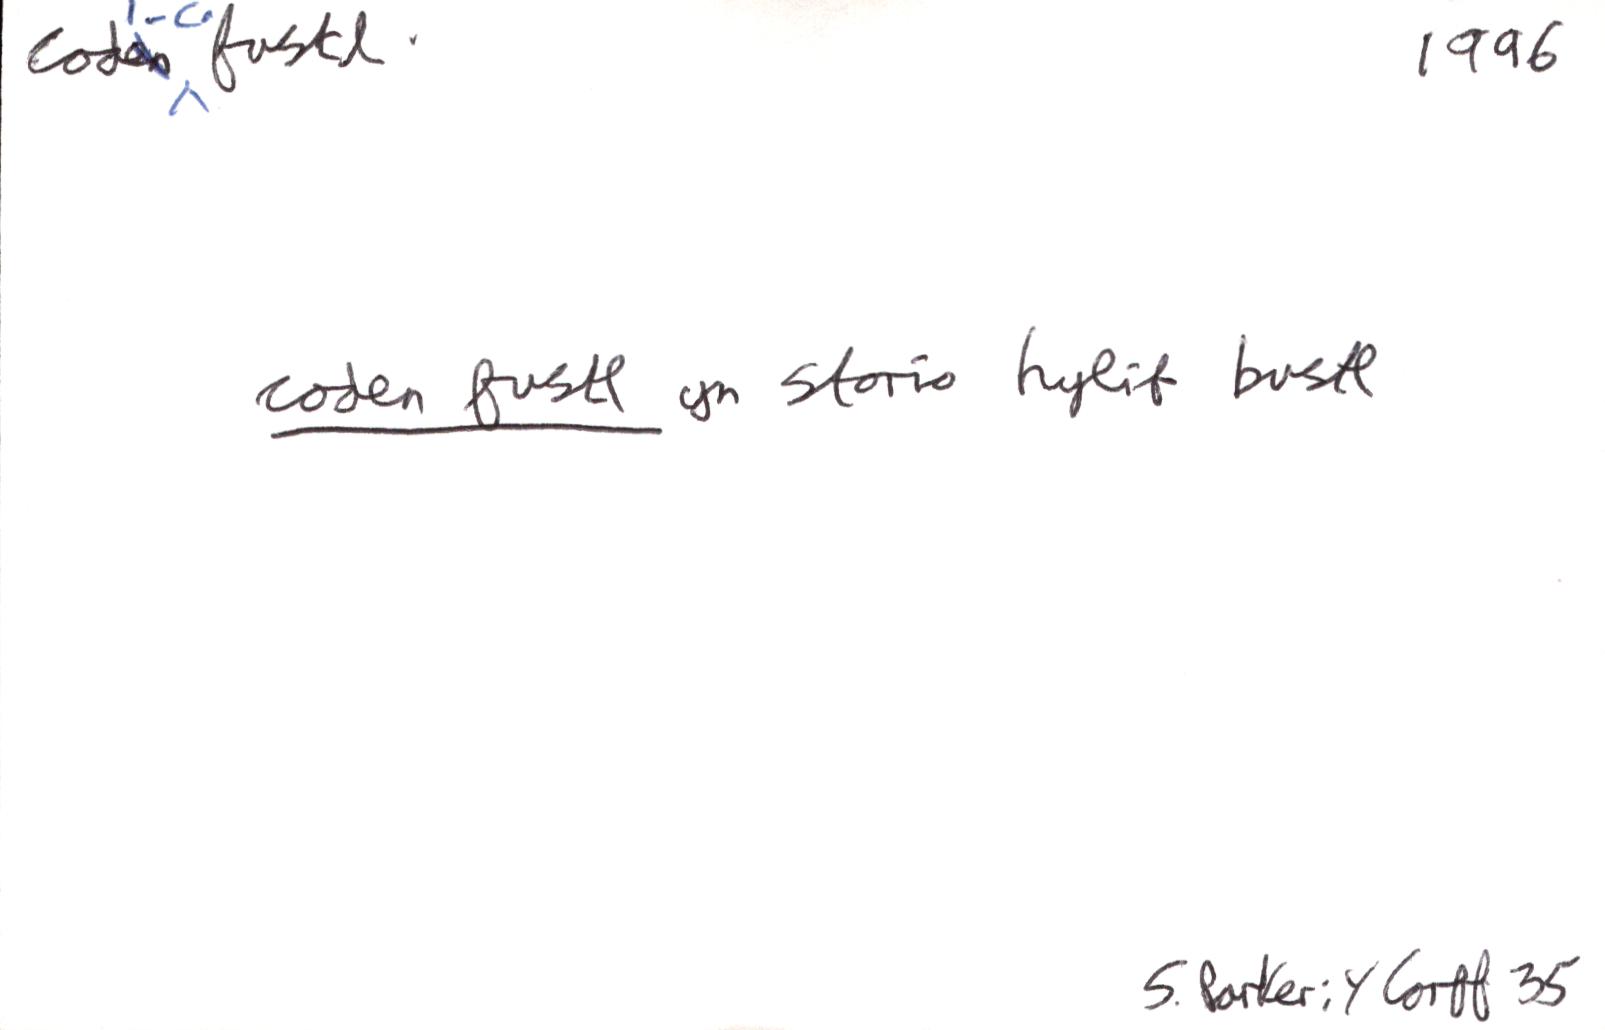 coden fustl. 1996
coden fustl yn storio hylif bustl
S. Parker: Y Corff 35